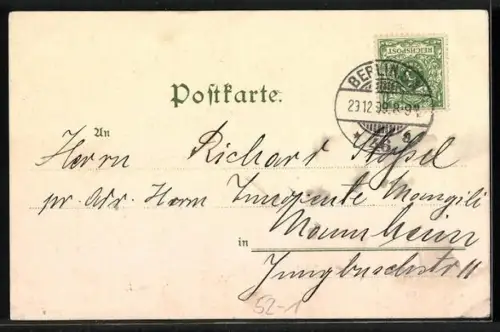 REICHSPOST
BERLIN
29.12.99. 8-9
* 46 a
Postkarte.
An
Herrn Richard
pr. Adr. Herrn Innocente Mangili
in Mannheim
Jungbuschstr 11
52-1